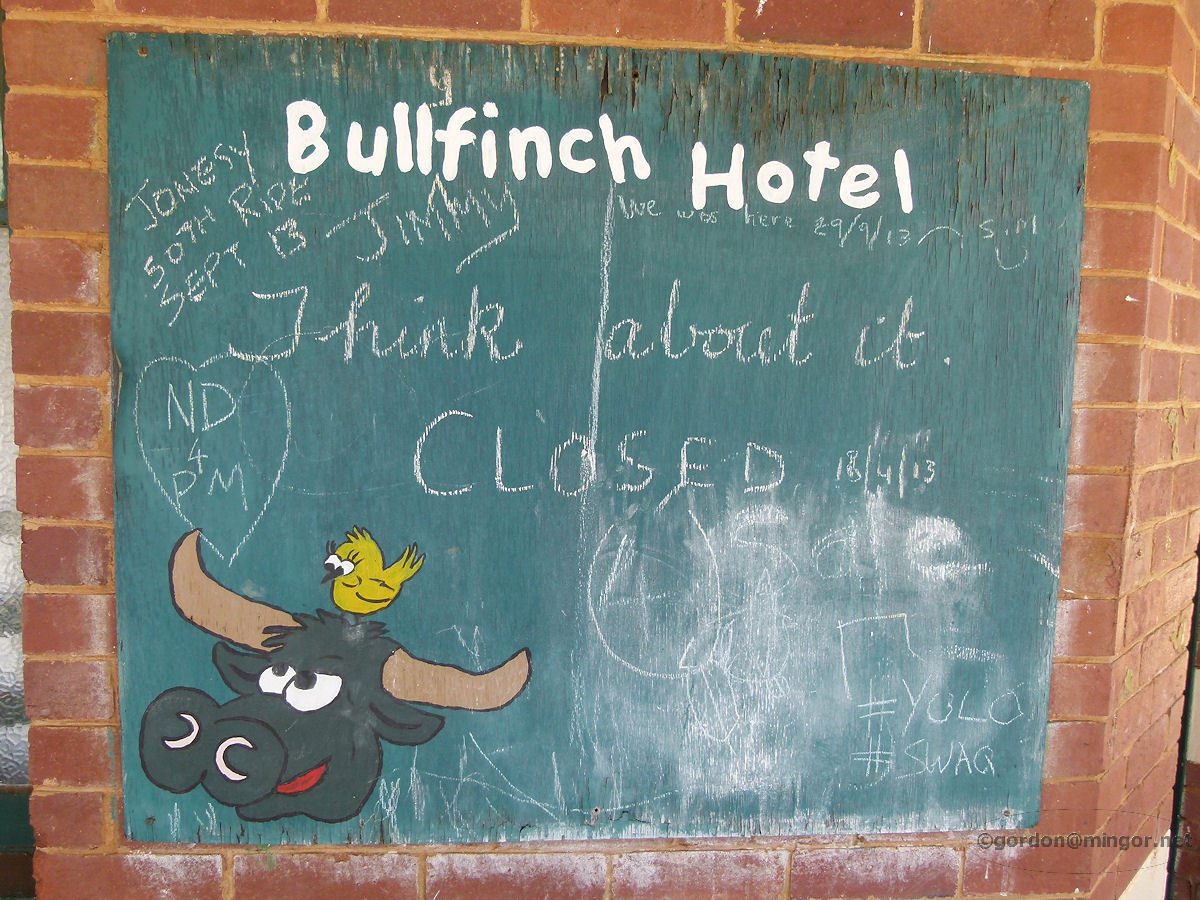 Bullfinch Hotel
JONESY
50TH RIDE
SEPT 13
JIMMY
We was here 29/9/13
Think about it.
ND
4
PM
CLOSED 18/4/13
#YOLO
#SWAG
©gordon@mingor.net